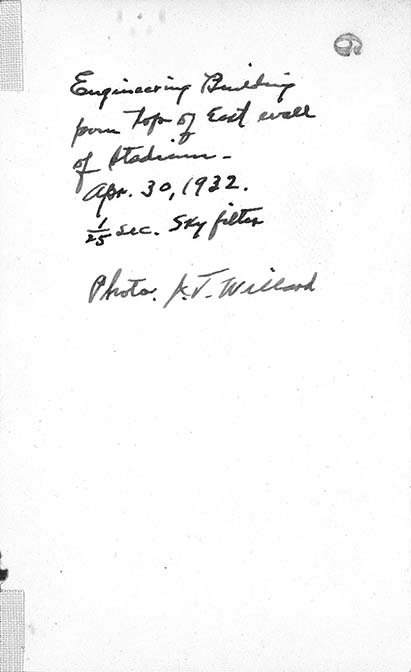 Engineering Building
from top of East wall
of Stadium -
Apr. 30, 1932.
1/25 sec. Sky filter
Photo. J.T. Willard